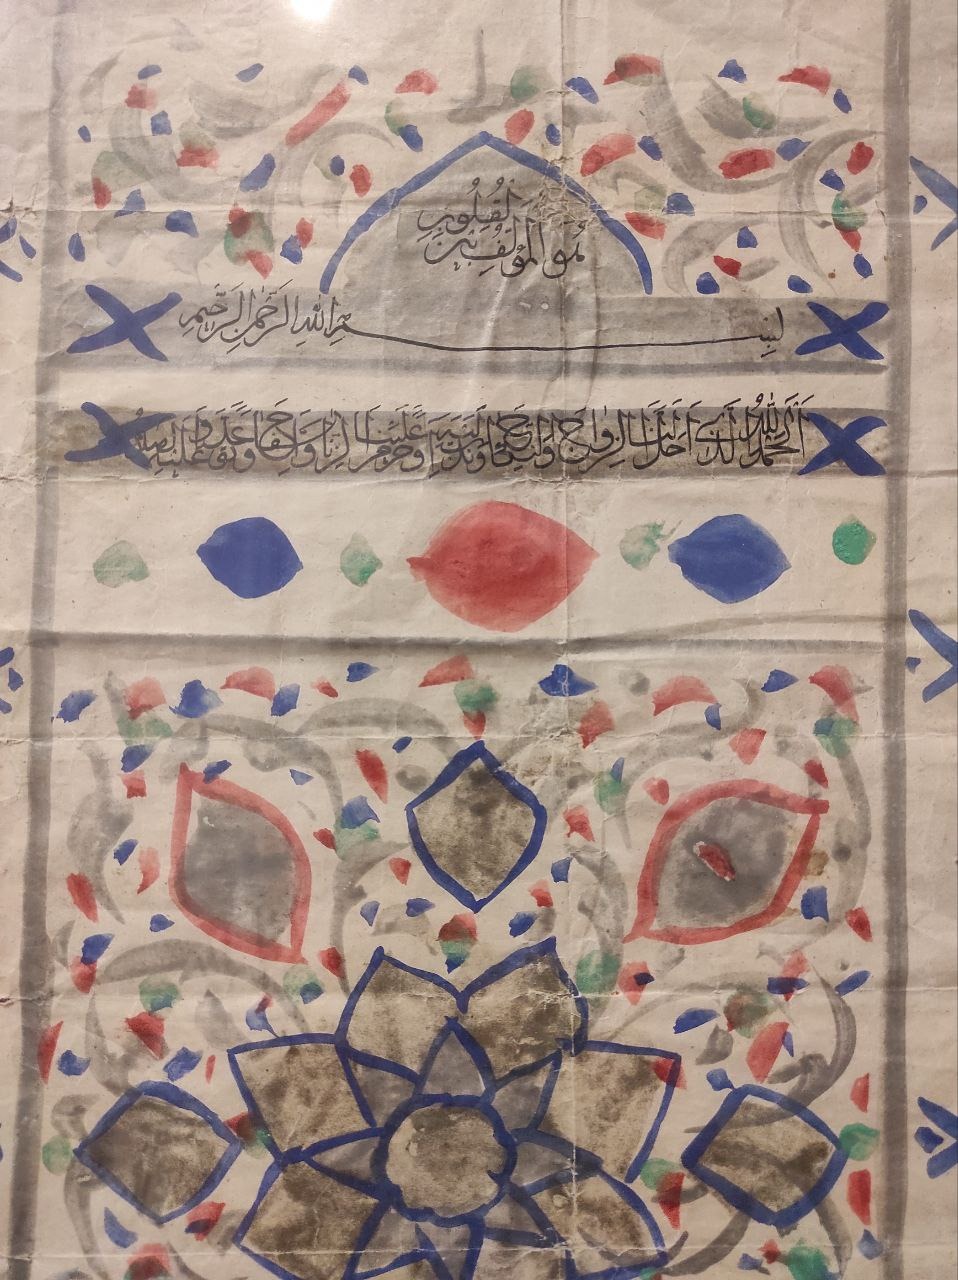 هُوَ المُوَلِّفُ بَيْنَ
القُلُوبِ
بِسْمِ اللهِ الرَّحْمٰنِ الرَّحِيمِ
اَلْحَمْدُ لِلّٰهِ الَّذي اَحَلَّ لَنَا الزواج وَالنِّكاحَ وَنَدَبَ وَحَرَّمَ عَلَيْنَا الزِّنا وَالسِّفاحَ